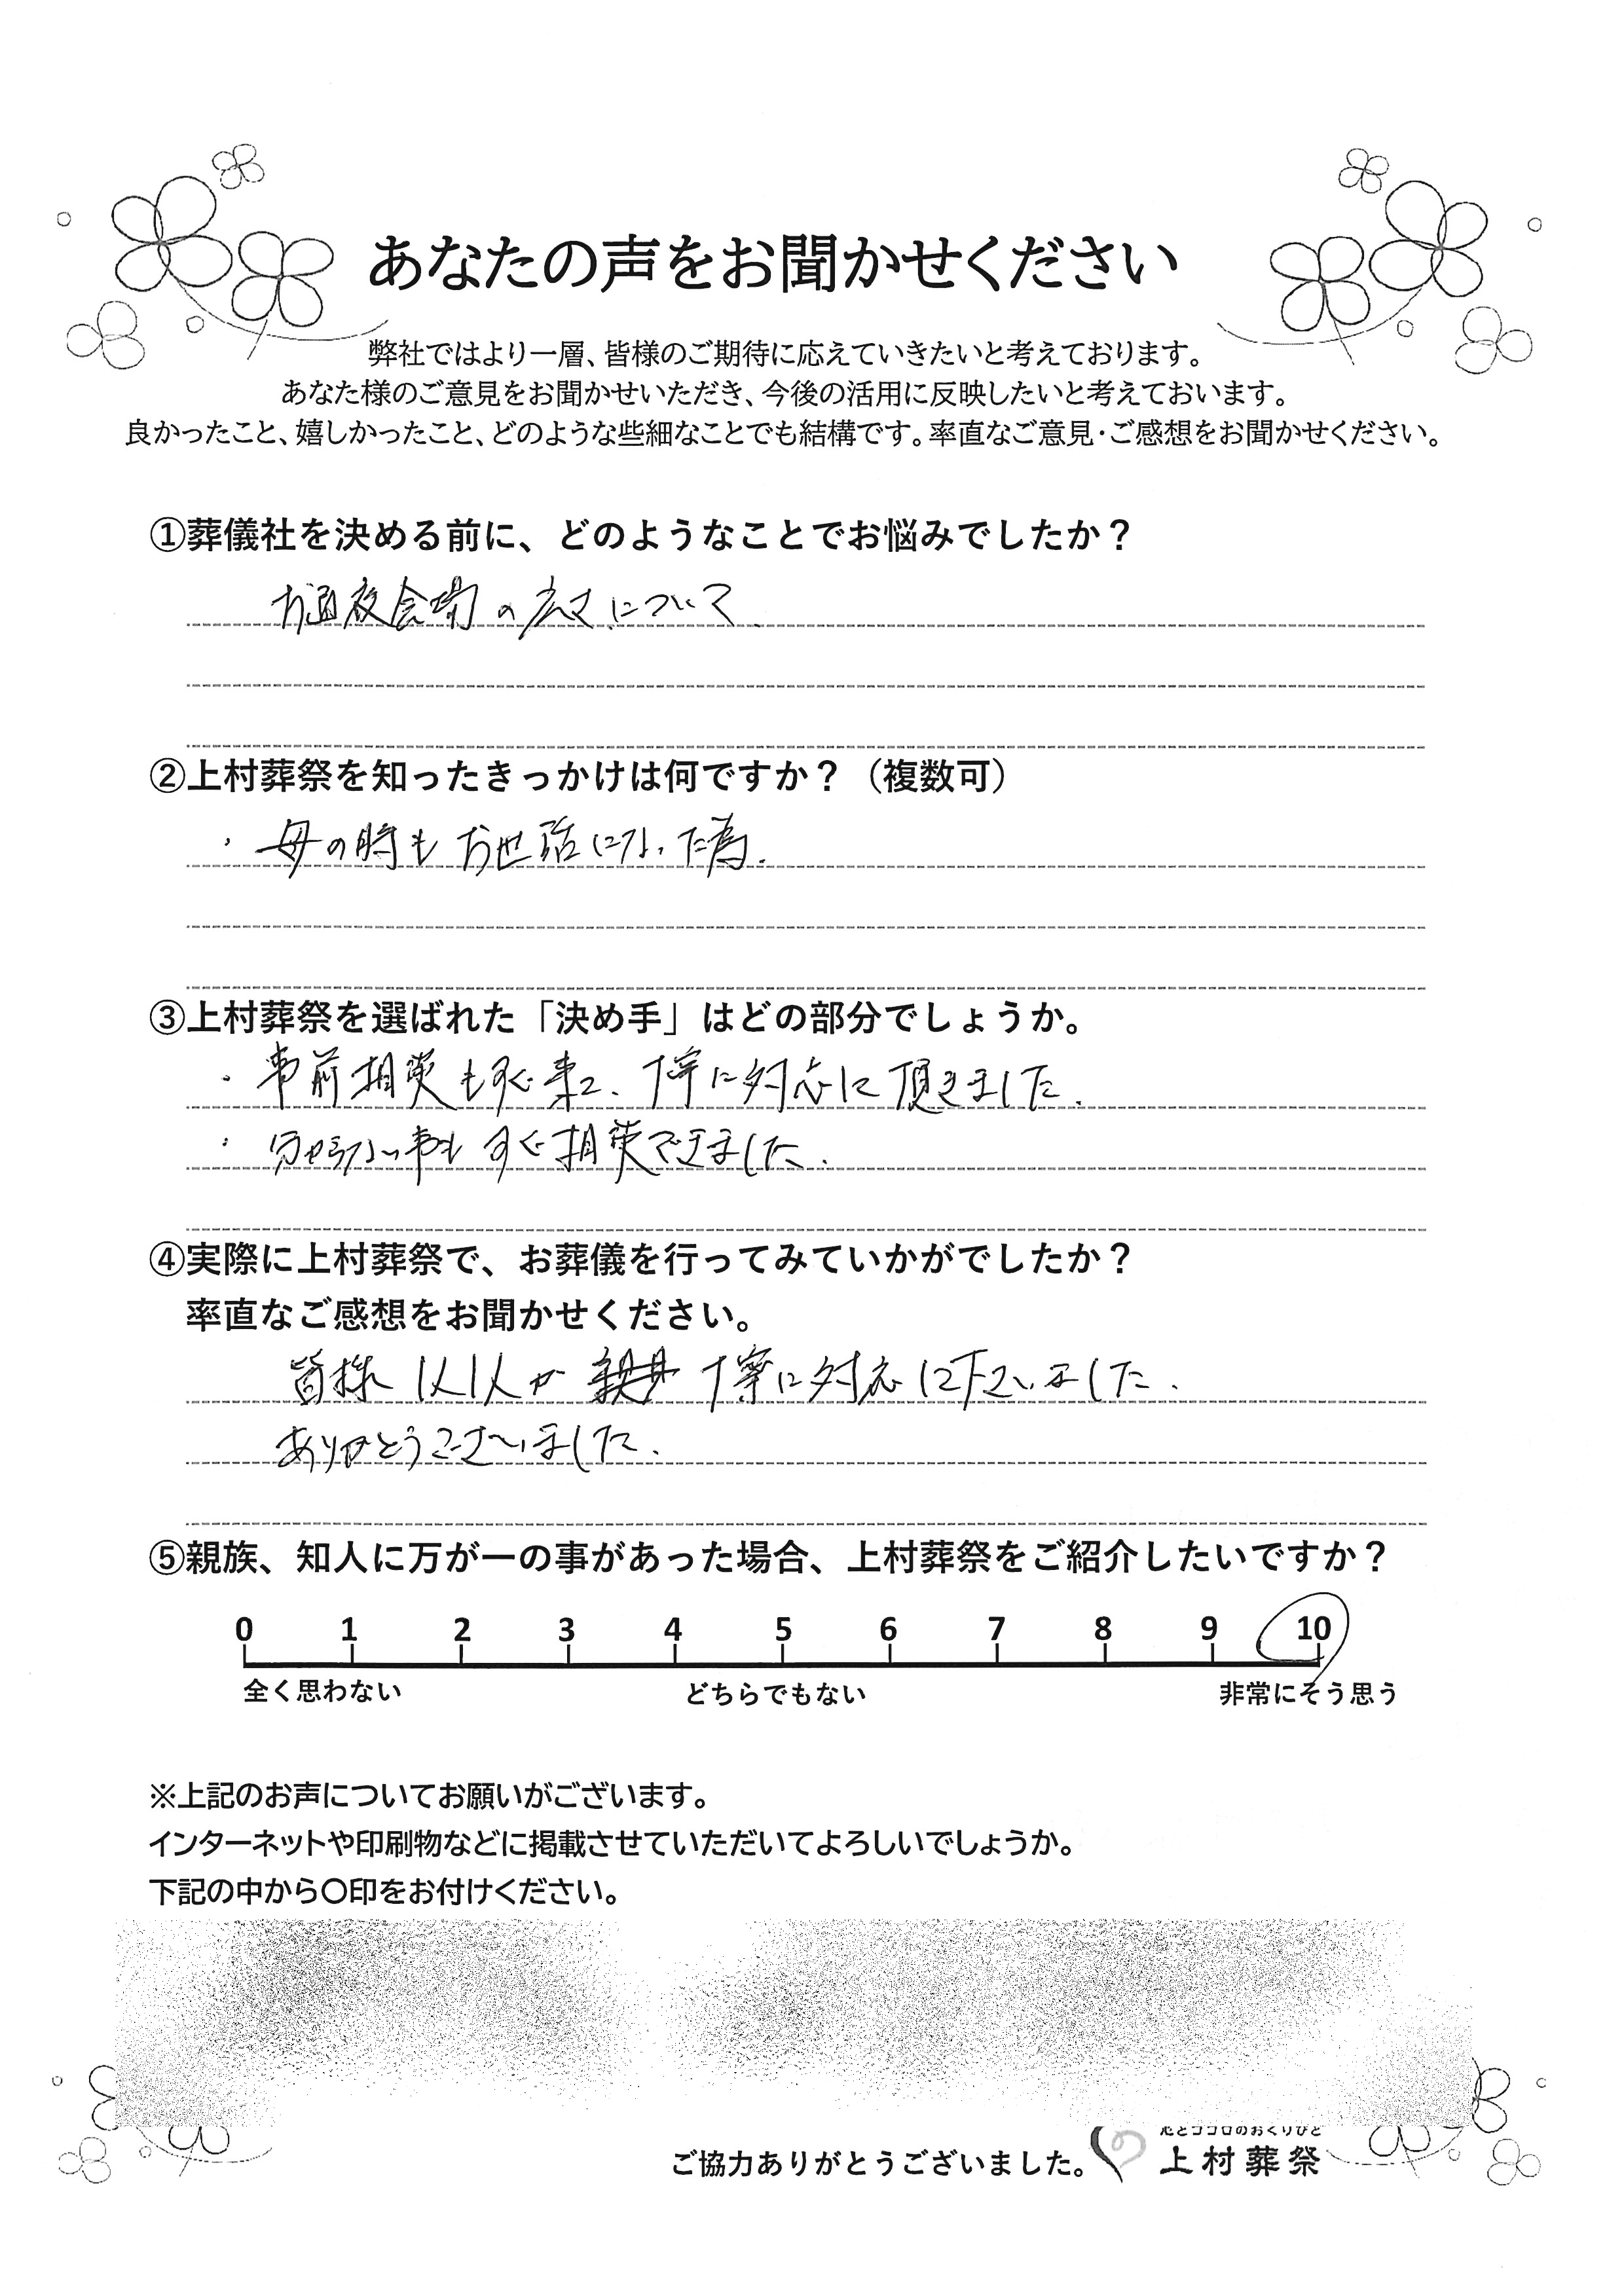 あなたの声をお聞かせください
弊社ではより一層、皆様のご期待に応えていきたいと考えております。
あなた様のご意見をお聞かせいただき、今後の活用に反映したいと考えておいます。
良かったこと、嬉しかったこと、どのような些細なことでも結構です。率直なご意見・ご感想をお聞かせください。
①葬儀社を決める前に、どのようなことでお悩みでしたか？
お通夜会場の広さについて.
②上村葬祭を知ったきっかけは何ですか？（複数可）
・母の時もお世話になった為.
③上村葬祭を選ばれた「決め手」はどの部分でしょうか。
・事前相談もすぐ来て、丁寧に対応して頂きました.
・分からない事もすぐ相談できました.
④実際に上村葬祭で、お葬儀を行ってみていかがでしたか？
率直なご感想をお聞かせください。
皆様1人1人が 丁寧に対応して下さいました.
ありがとうございました.
⑤親族、知人に万が一の事があった場合、上村葬祭をご紹介したいですか？
0 1 2 3 4 5 6 7 8 9 10
全く思わない どちらでもない 非常にそう思う
※上記のお声についてお願いがございます。
インターネットや印刷物などに掲載させていただいてよろしいでしょうか。
下記の中から〇印をお付けください。
心とココロのおくりびと
ご協力ありがとうございました。 上村葬祭